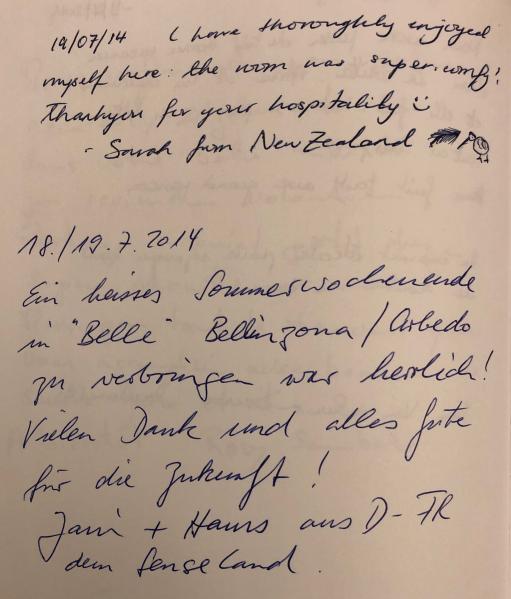 19/07/14 I have thoroughly enjoyed
myself here: the room was super comfy!
Thankyou for your hospitality
- Sarah from New Zealand
18./19.7.2014
Ein heisses Sommerwochenende
in "Belle" Bellinzona / Arbedo
zu verbringen war herrlich!
Vielen Dank und alles Gute
für die Zukunft!
+ Hans aus D-FR
dem Senseland.